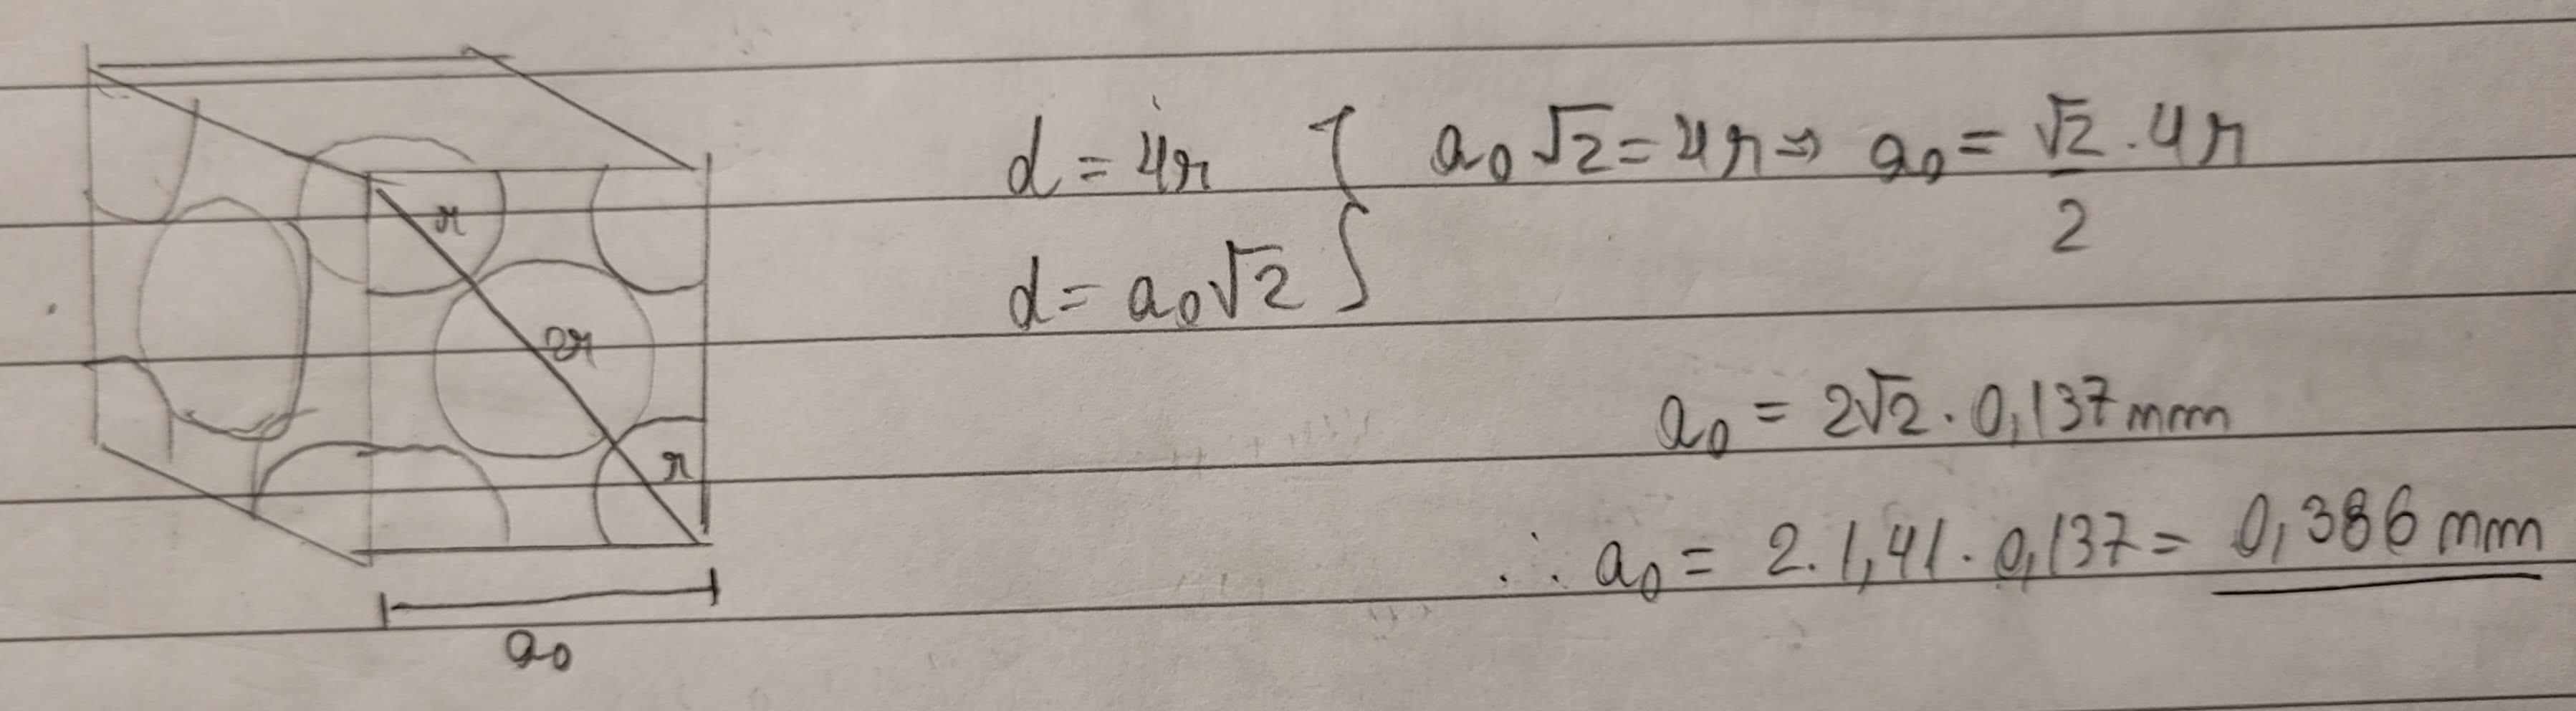 r
2r
r
a₀
d = 4r } a₀√2 = 4r ⇒ a₀ = √2 . 4r / 2
d = a₀√2
a₀ = 2√2 . 0,137 nm
∴ a₀ = 2 . 1,41 . 0,137 = 0,386 nm